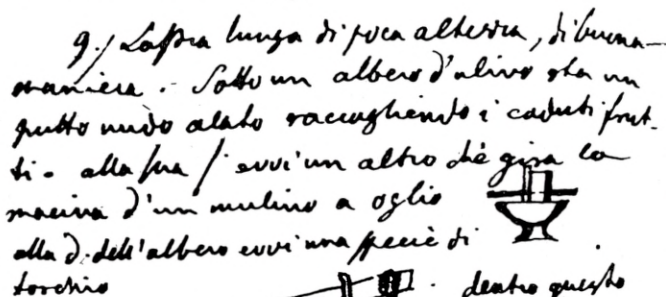 9./ Lastra lunga di poca altezza, di buona
maniera. Sotto un albero d'ulivo sta un
putto nudo alato raccogliendo i caduti frut-
ti. alla sua / evvi un altro che gira la
macina d'un mulino a oglio
alla d. dell'albero evvi una specie di
torchio . dentro questo